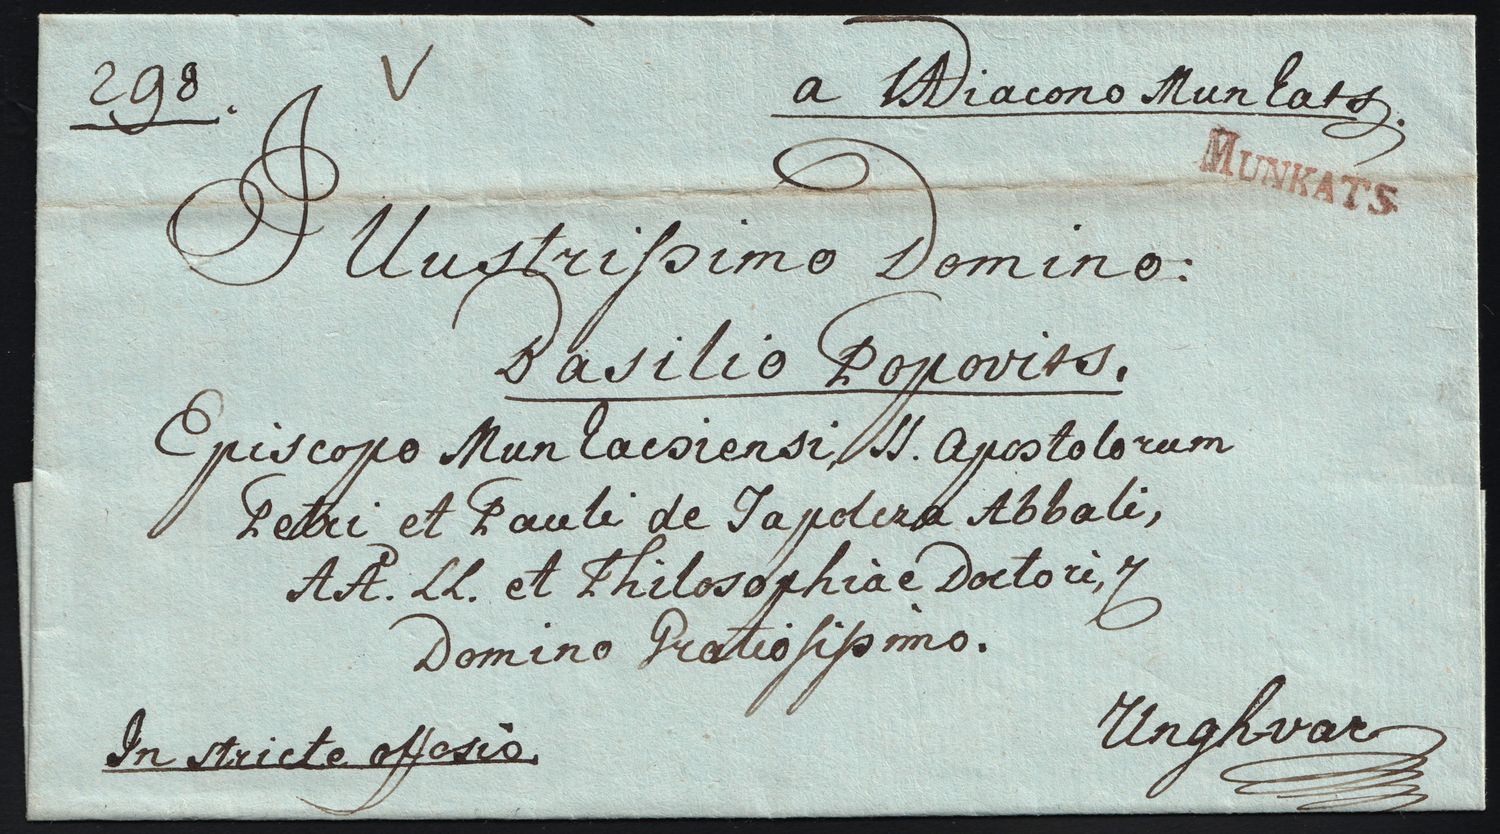 298.
V
a VADiacono Munkats.
MUNKATS
Illustrissimo Domino:
Basilio Popovits.
Episcopo Munkacsiensi, SS. Apostolorum
Petri et Pauli de Tapolcza Abbati,
AA. LL. et Philosophiae Doctori,
Domino Gratiosissimo.
In stricte officio.
Unghvar